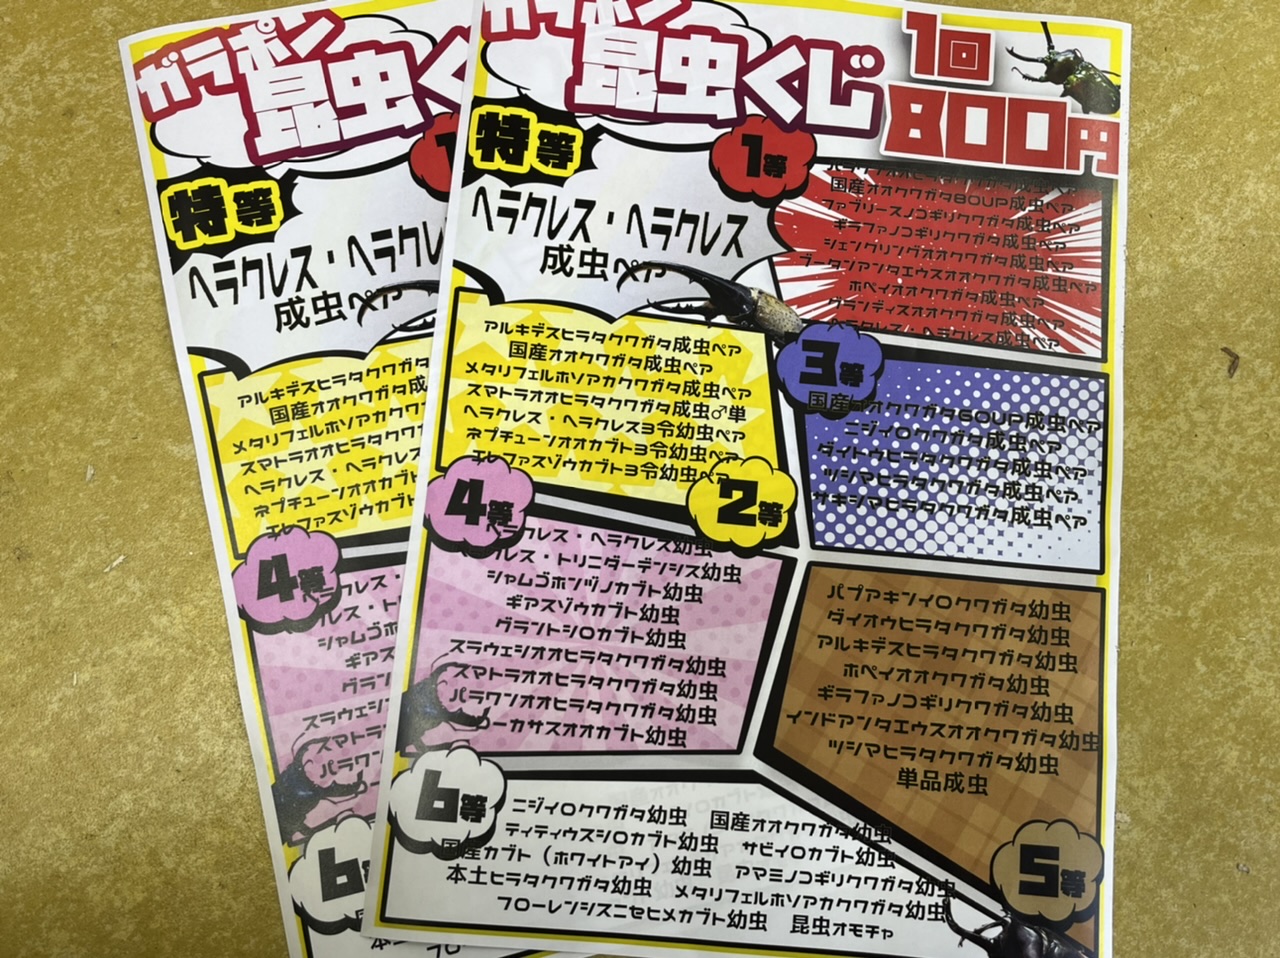 ガラポン
昆虫くじ
1回
800円
特等
ヘラクレス・ヘラクレス
成虫ペア
1等
国産オオクワガタ80UP成虫ペア
ファブリースノコギリクワガタ成虫ペア
ギラファノコギリクワガタ成虫ペア
シェンクリングオオクワガタ成虫ペア
ブータンアンタエウスオオクワガタ成虫ペア
ホペイオオクワガタ成虫ペア
グランディスオオクワガタ成虫ペア
ヘラクレス・ヘラクレス成虫ペア
アルキデスヒラタクワガタ成虫ペア
国産オオクワガタ成虫ペア
メタリフェルホソアカクワガタ成虫ペア
スマトラオオヒラタクワガタ成虫♂単
ヘラクレス・ヘラクレス3令幼虫ペア
ネプチューンオオカブト3令幼虫ペア
エレファスゾウカブト3令幼虫ペア
2等
3等
国産オオクワガタ60UP成虫ペア
ニジイロクワガタ成虫ペア
ダイトウヒラタクワガタ成虫ペア
ツシマヒラタクワガタ成虫ペア
サキシマヒラタクワガタ成虫ペア
4等
ヘラクレス・ヘラクレス幼虫
ルス・トリニダーデンシス幼虫
シャムゴホンヅノカブト幼虫
ギアスゾウカブト幼虫
グラントシロカブト幼虫
スラウェシオオヒラタクワガタ幼虫
スマトラオオヒラタクワガタ幼虫
パラワンオオヒラタクワガタ幼虫
ーカサスオオカブト幼虫
パプアキンイロクワガタ幼虫
ダイオウヒラタクワガタ幼虫
アルキデスヒラタクワガタ幼虫
ホペイオオクワガタ幼虫
ギラファノコギリクワガタ幼虫
インドアンタエウスオオクワガタ幼虫
ツシマヒラタクワガタ幼虫
単品成虫
5等
6等
ニジイロクワガタ幼虫 国産オオクワガタ幼虫
ティティウスシロカブト幼虫 サビイロカブト幼虫
国産カブト（ホワイトアイ）幼虫 アマミノコギリクワガタ幼虫
本土ヒラタクワガタ幼虫 メタリフェルホソアカクワガタ幼虫
フローレンシスニセヒメカブト幼虫 昆虫オモチャ
ガラポン
昆虫く
特等
ヘラクレス・ヘラクレ
成虫ペア
アルキデスヒラタクワガタ
国産オオクワガタ成
メタリフェルホソアカクワ
スマトラオオヒラタクワ
ヘラクレス・ヘラクレス
ネプチューンオオカブト
エレファスゾウカブト
4等
ヘラクレス・
ルス・ト
シャムゴホ
ギアス
グラン
スラウェシ
スマトラ
パラワ
6等